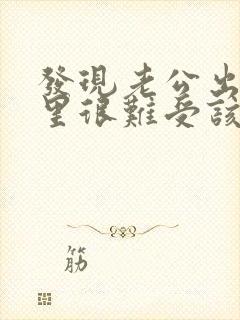 發現老公出
里很難受該
筋